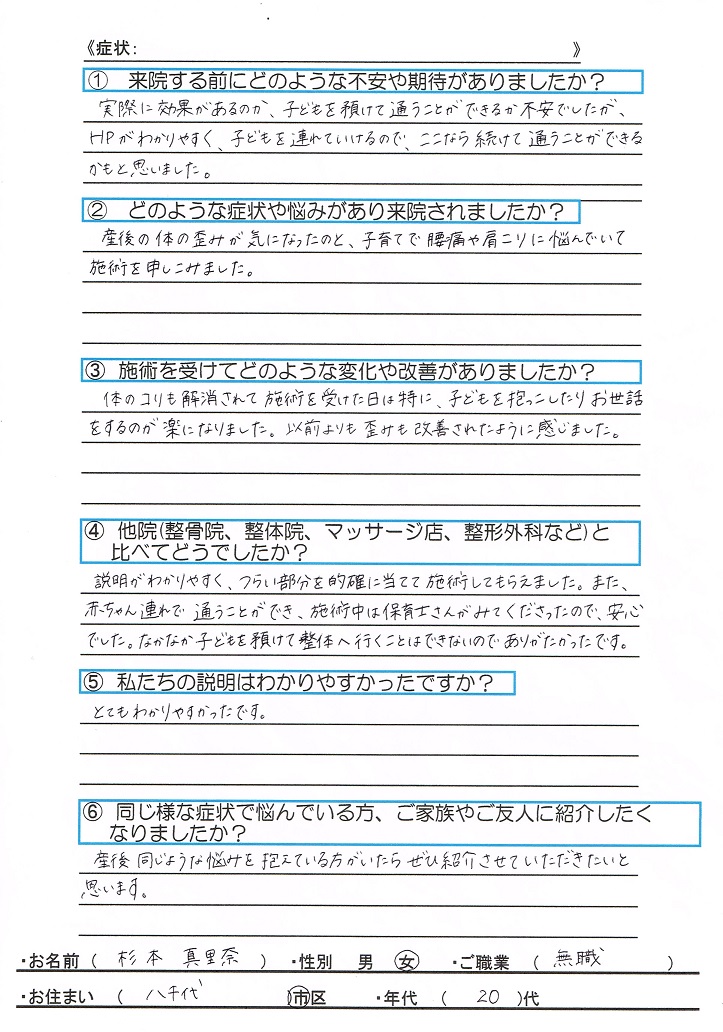 《症状:　》
① 来院する前にどのような不安や期待がありましたか？
実際に効果があるのか、子どもを預けて通うことができるか不安でしたが、
HPがわかりやすく、子どもを連れていけるので、ここなら続けて通うことができる
かもと思いました。
② どのような症状や悩みがあり来院されましたか？
産後の体の歪みが気になったのと、子育てで腰痛や肩こりに悩んでいて
施術を申しこみました。
③ 施術を受けてどのような変化や改善がありましたか？
体のコリも解消されて施術を受けた日は特に、子どもを抱っこしたりお世話
をするのが楽になりました。以前よりも歪みも改善されたように感じました。
④ 他院(整骨院、整体院、マッサージ店、整形外科など)と
比べてどうでしたか？
説明がわかりやすく、つらい部分を的確に当てて施術してもらえました。また、
赤ちゃん連れで通うことができ、施術中は保育士さんがみてくださったので、安心
でした。なかなか子どもを預けて整体へ行くことはできないのでありがたかったです。
⑤ 私たちの説明はわかりやすかったですか？
とてもわかりやすかったです。
⑥ 同じ様な症状で悩んでいる方、ご家族やご友人に紹介したく
なりましたか？
産後同じような悩みを抱えている方がいたらぜひ紹介させていただきたいと
思います。
・お名前（ 杉本 真里奈 ） ・性別 男 女 ・ご職業 （ 無職 ）
・お住まい （ 八千代 市区 ・年代 （ 20 ）代